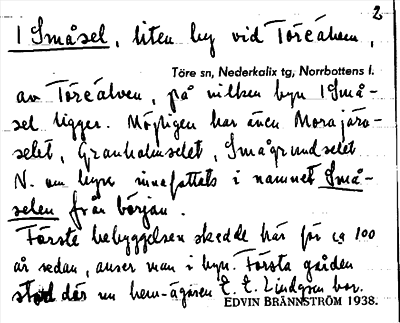 2
1 Småsel, liten by vid Töreälven,
Töre sn, Nederkalix tg, Norrbottens l.
av Töreälven, på vilken byn 1 Små-
sel ligger. Möjligen har även Morajärv-
selet, Granholmselet, Smågrundselet
N. om byn innefattats i namnet Små-
selen från början.
Första bebyggelsen skedde här för ca 100
år sedan, anser man i byn. Första gården
stod där nu hem-ägaren E. E. Lindgren bor.
EDVIN BRÄNNSTRÖM 1938.